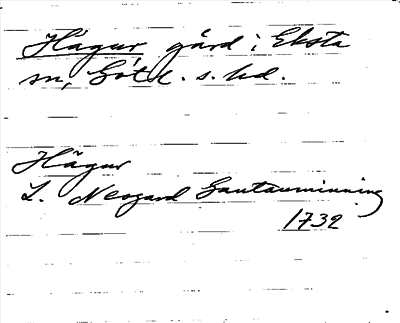 Hägur gård i Eksta
sn, Gotl. s. hd.
Hägur
L. Neogard Gautauminning
1732